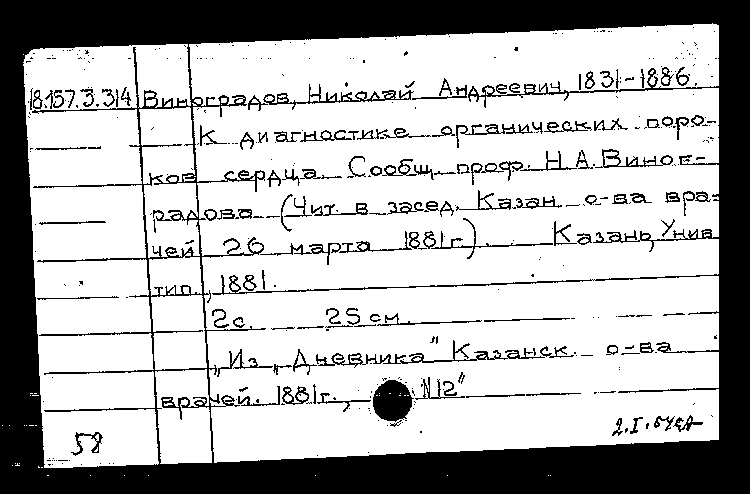 18.157.3.314 Виноградов, Николай Андреевич, 1831-1886.
К диагностике органических поро-
ков сердца. Сообщ. проф. Н.А. Виног-
радова (Чит. в засед. Казан. о-ва вра-
чей 26 марта 1881г.). Казань, Унив.
тип., 1881.
2с. 25 см.
„Из „Дневника" Казанск. о-ва
врачей. 1881г., N12"
58